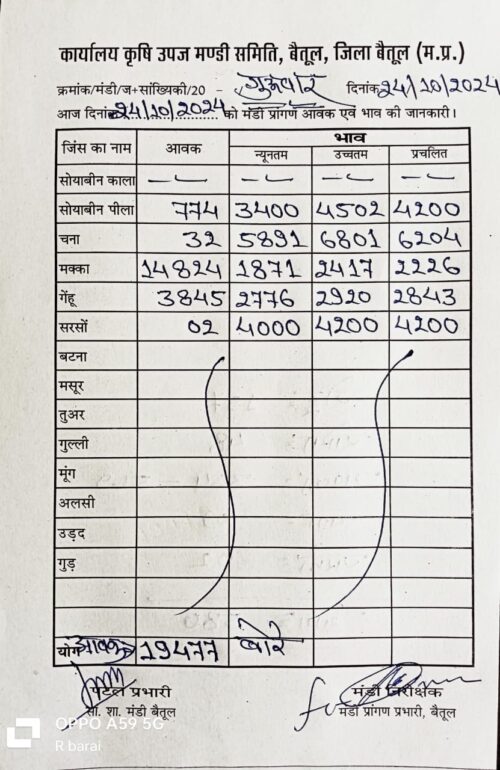 कार्यालय कृषि उपज मण्डी समिति, बैतूल, जिला बैतूल (म.प्र.)
क्रमांक/मंडी/ज+सांख्यिकी/20 - गुरूवार दिनांक 24/10/2024
आज दिनांक 24/10/2024 को मंडी प्रांगण आवक एवं भाव की जानकारी।
जिंस का नाम आवक भाव
न्यूनतम उच्चतम प्रचलित
सोयाबीन काला -- -- -- --
सोयाबीन पीला 774 3400 4502 4200
चना 32 5891 6801 6204
मक्का 14824 1871 2417 2226
गेंहू 3845 2776 2920 2843
सरसों 02 4000 4200 4200
बटना
मसूर
तुअर
गुल्ली
मूंग
अलसी
उड़द
गुड़
योग आवक 19477 बोरे
पटल प्रभारी मंडी निरीक्षक
सां. शा. मंडी बैतूल मंडी प्रांगण प्रभारी, बैतूल
OPPO A59 5G
R barai